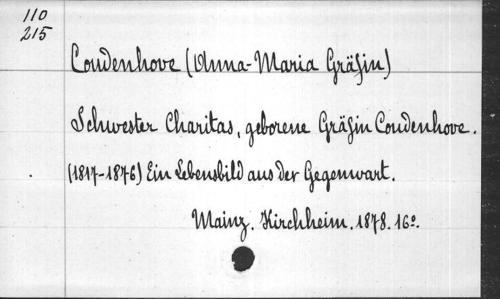 110
215
Coudenhove (Anna-Maria Gräfin)
Schwester Charitas, geborene Gräfin Coudenhove.
(1817-1876) Ein Lebensbild aus der Gegenwart.
Mainz. Kirchheim. 1878. 16º.